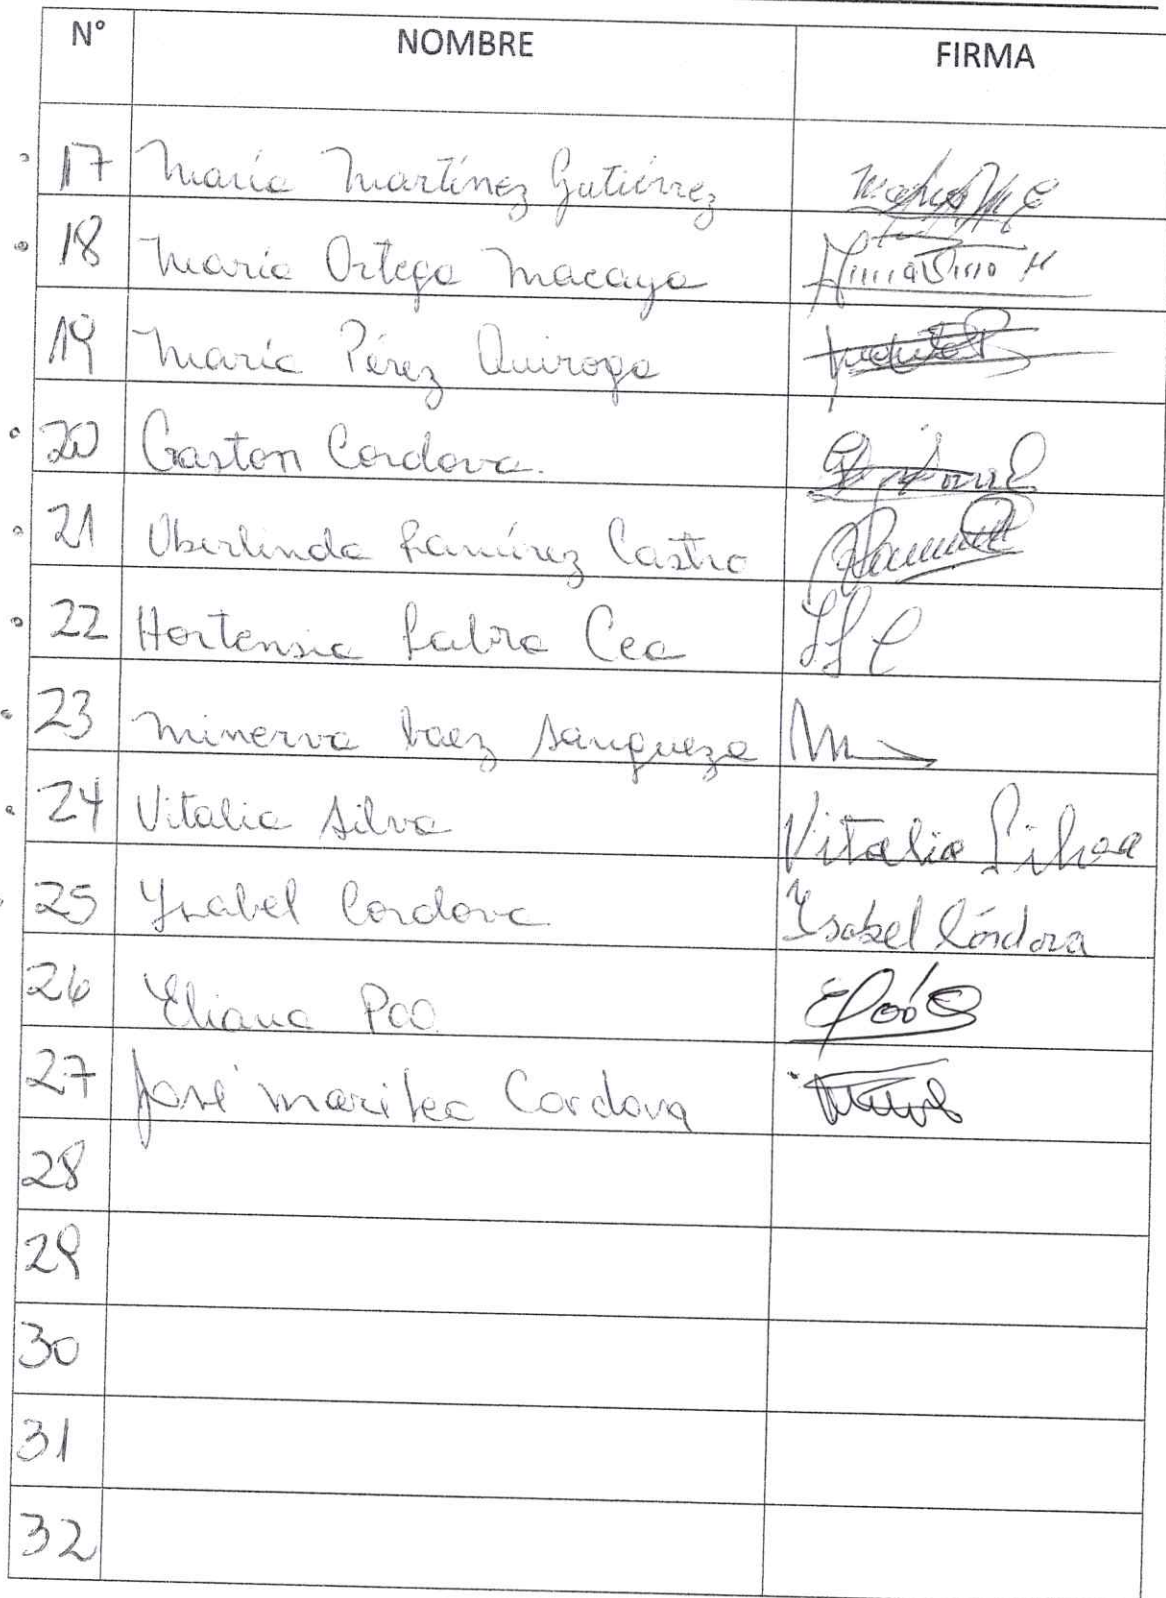 N° NOMBRE FIRMA
17 María Martínez Gutiérrez
18 María Ortega Macaya
19 María Pérez Quiroga
20 Gaston Cordova.
21 Oberlinda Ramírez Castro
22 Hortensia Labra Cea
23 Minerva baez Sangueza
24 Vitalia Silva Vitalia Silva
25 Ysabel Cordova Ysabel Córdova
26 Eliana Poo
27 José Cordova
28
29
30
31
32